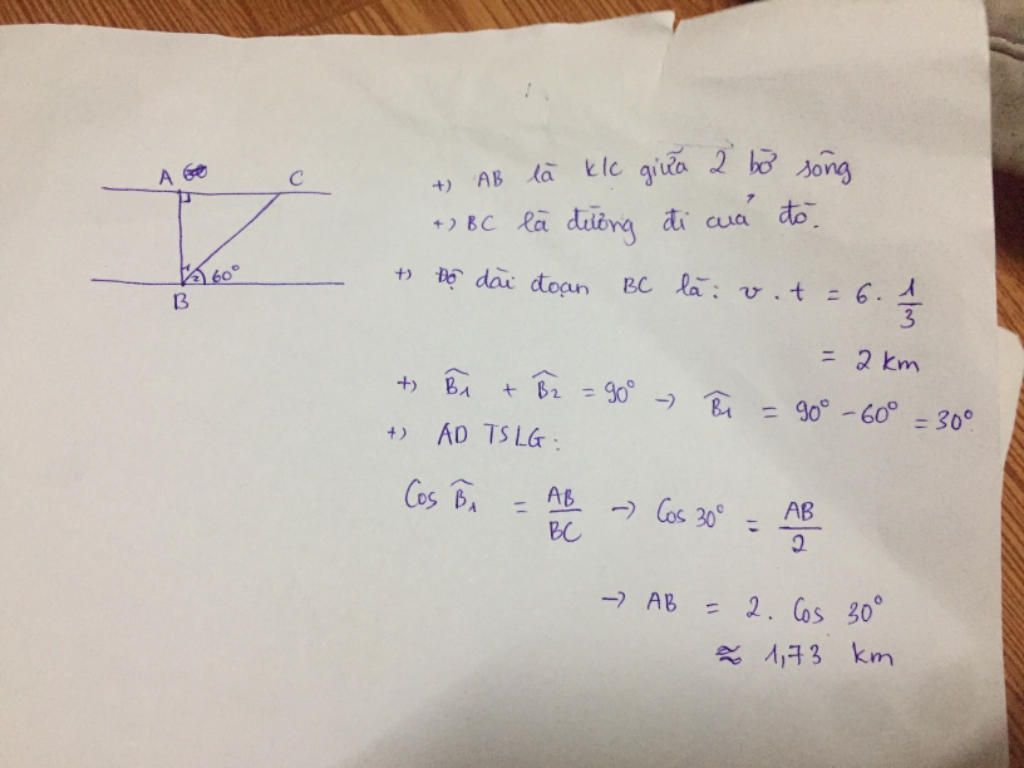 A C
60°
B
+) AB là k/c giữa 2 bờ sông
+) BC là đường đi của đò.
+) Độ dài đoạn BC là: v . t = 6 . 1/3
= 2 km
+) B̂1 + B̂2 = 90° → B̂1 = 90° - 60° = 30°
+) AD TSLG:
Cos B̂1 = AB/BC → Cos 30° = AB/2
→ AB = 2. Cos 30°
≈ 1,73 km